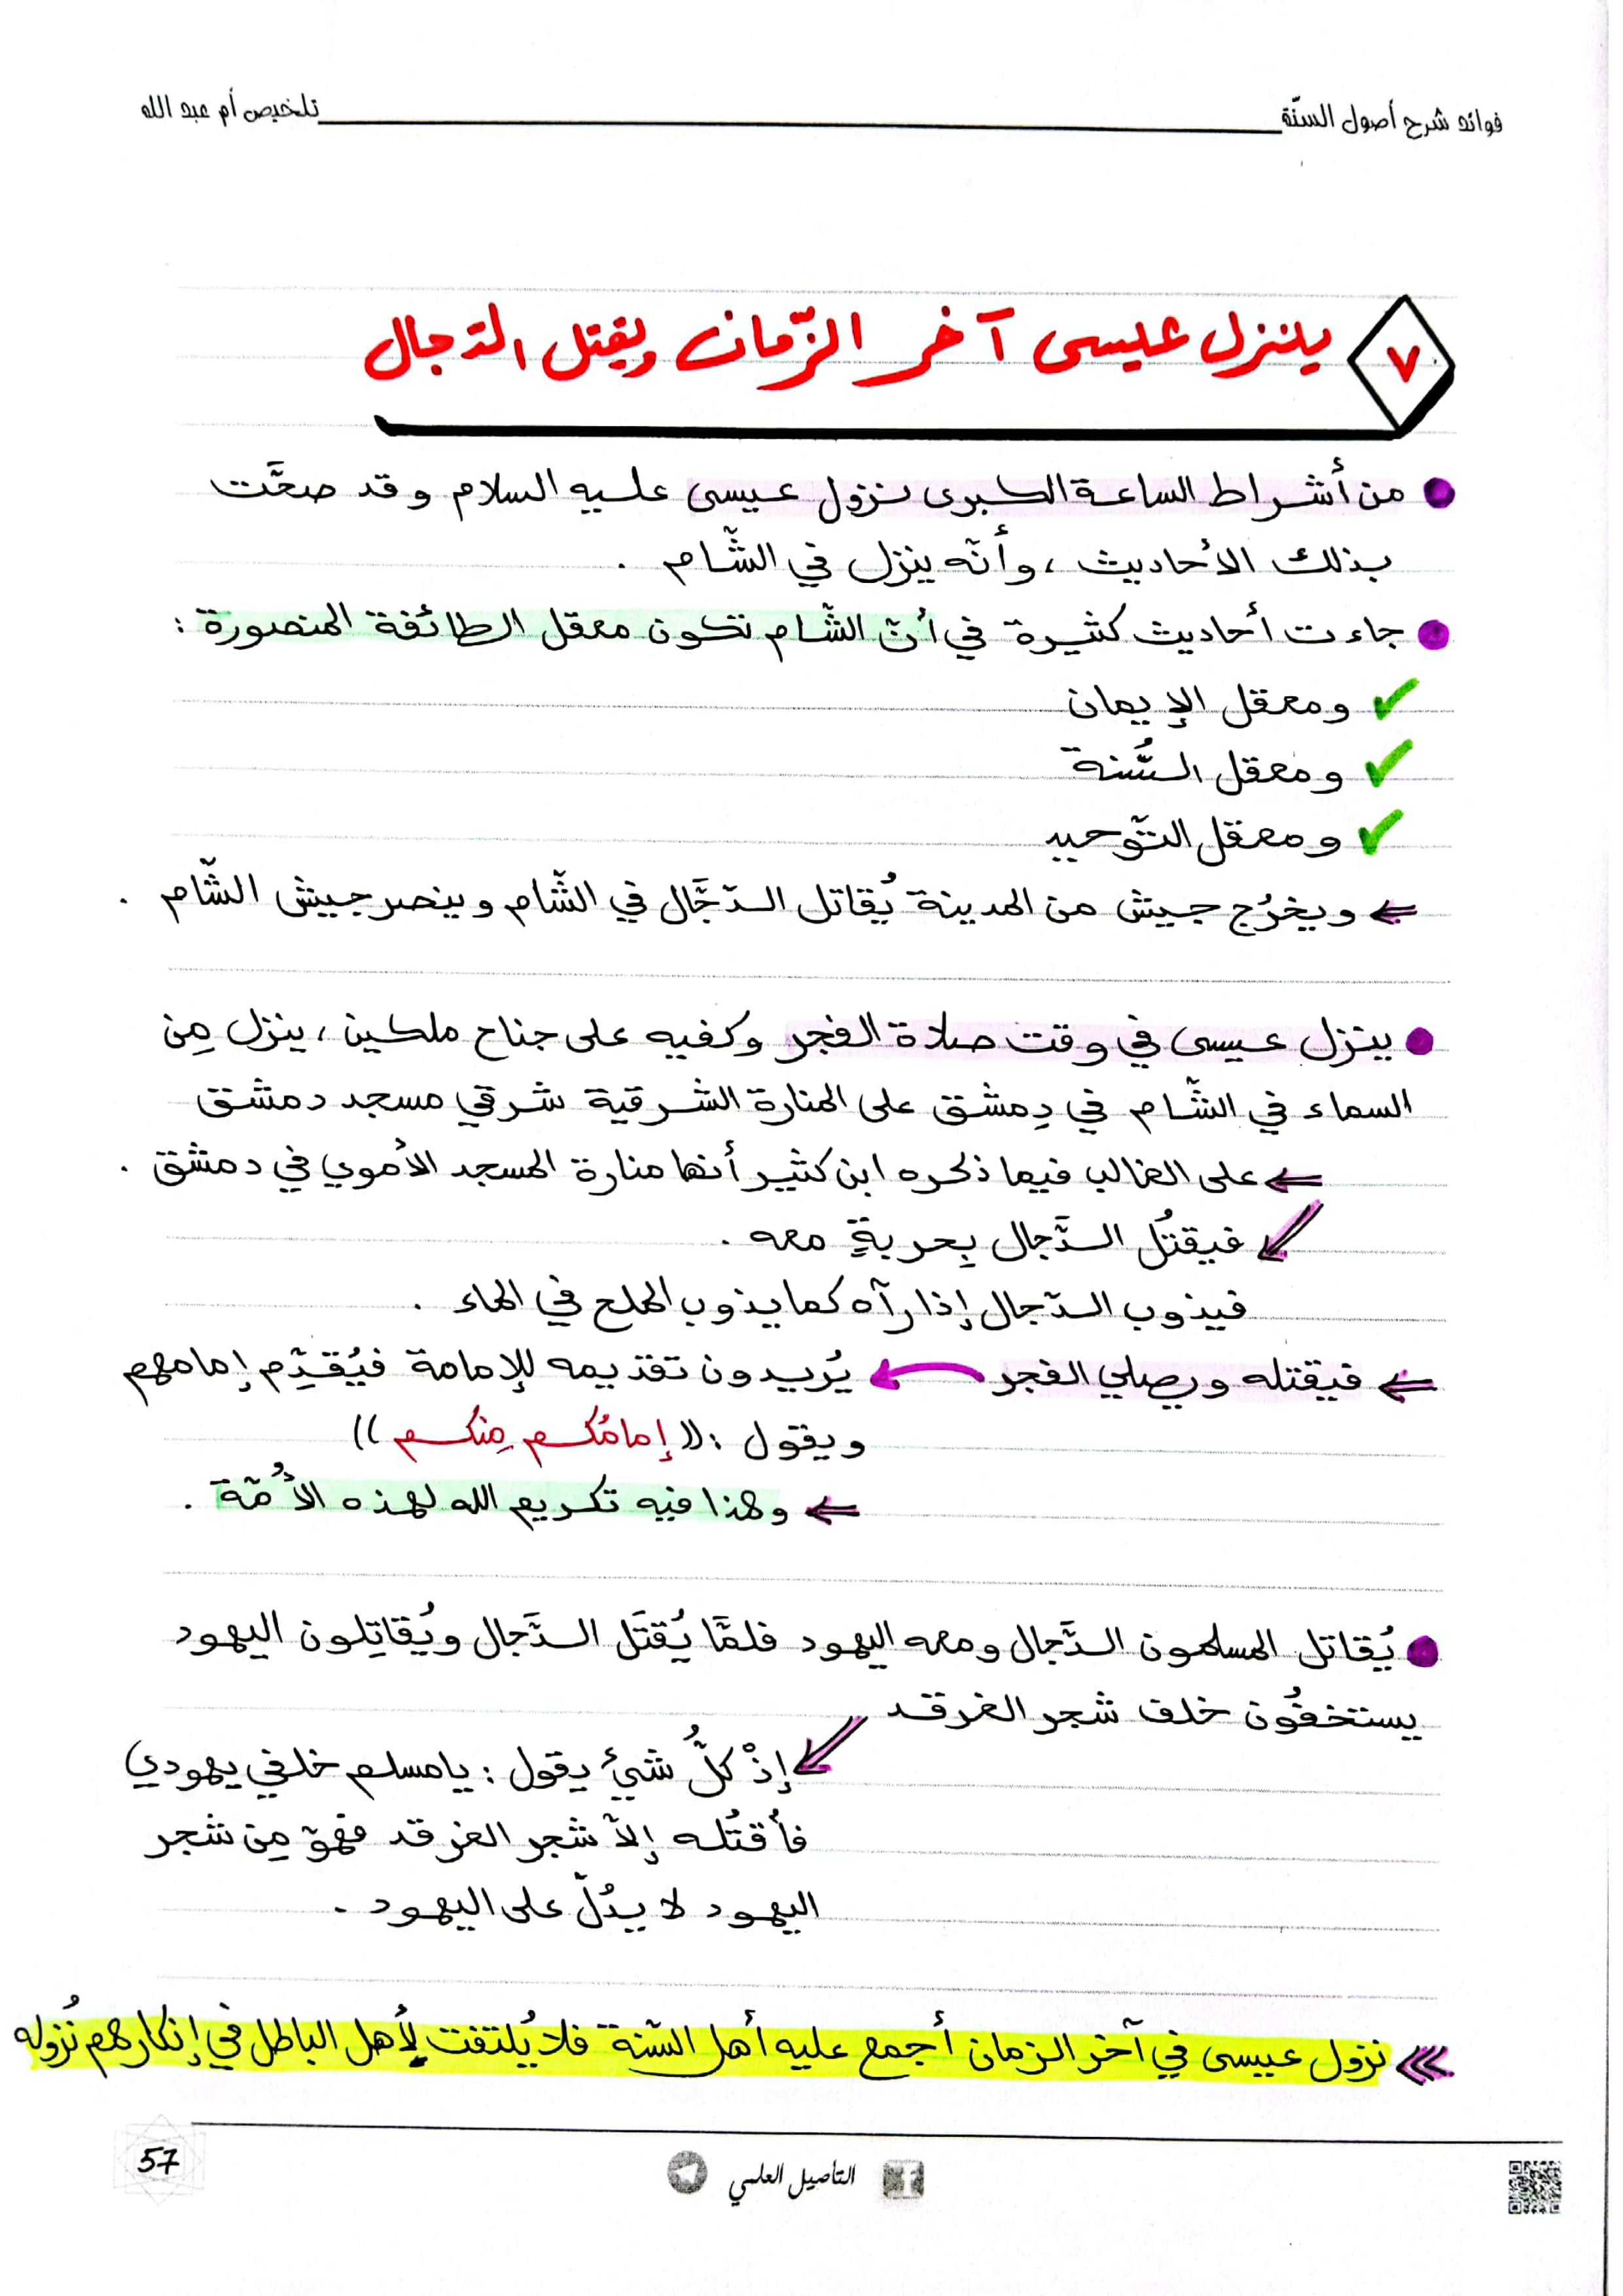 فوائد شرح أصول السنّة
تلخيص أم عبد الله
٧
ينزل عيسى آخر الزّمان ويقتل الدّجال
من أشراط الساعة الكبرى نزول عيسى عليه السلام وقد صحَّت
بذلك الأحاديث ، وأنّه ينزل في الشّام .
جاءت أحاديث كثيرة في أنّ الشّام تكون معقل الطائفة المنصورة :
ومعقل الإيمان
ومعقل السُّنة
ومعقل التّوحيد
ويخرُج جيش من المدينة يُقاتل الدّجَّال في الشّام وينصر جيش الشّام .
ينزل عيسى في وقت صلاة الفجر وكفيه على جناح ملكين ، ينزل مِن
السماء في الشّام في دِمشق على المنارة الشرقية شرقي مسجد دمشق
على الغالب فيما ذكره ابن كثير أنها منارة المسجد الأموي في دمشق .
فيقتُل الدَّجال بِحربةٍ معه .
فيذوب الدّجال إذا رآه كما يذوب الملح في الماء .
فيقتله ويصلي الفجر
يُريدون تقديمه للإمامة فيُقدِّم إمامهم
ويقول : (( إمامُكم مِنكم ))
وهذا فيه تكريم الله لهذه الأُمّة .
يُقاتل المسلمون الدَّجال ومعه اليهود فلمَّا يُقتَل الدَّجال ويُقاتِلون اليهود
يستخفُون خلف شجر الغرقد
إذْ كلُّ شيئ يقول : يا مسلم خلفي يهودي
فأقتُله إلاّ شجر الغرقد فهو مِن شجر
اليهود لا يدُلّ على اليهود .
نزول عيسى في آخر الزمان أجمع عليه أهل السّنة فلا يُلتفت لِأهل الباطل في إنكارهم نُزوله
التأصيل العلمي
57